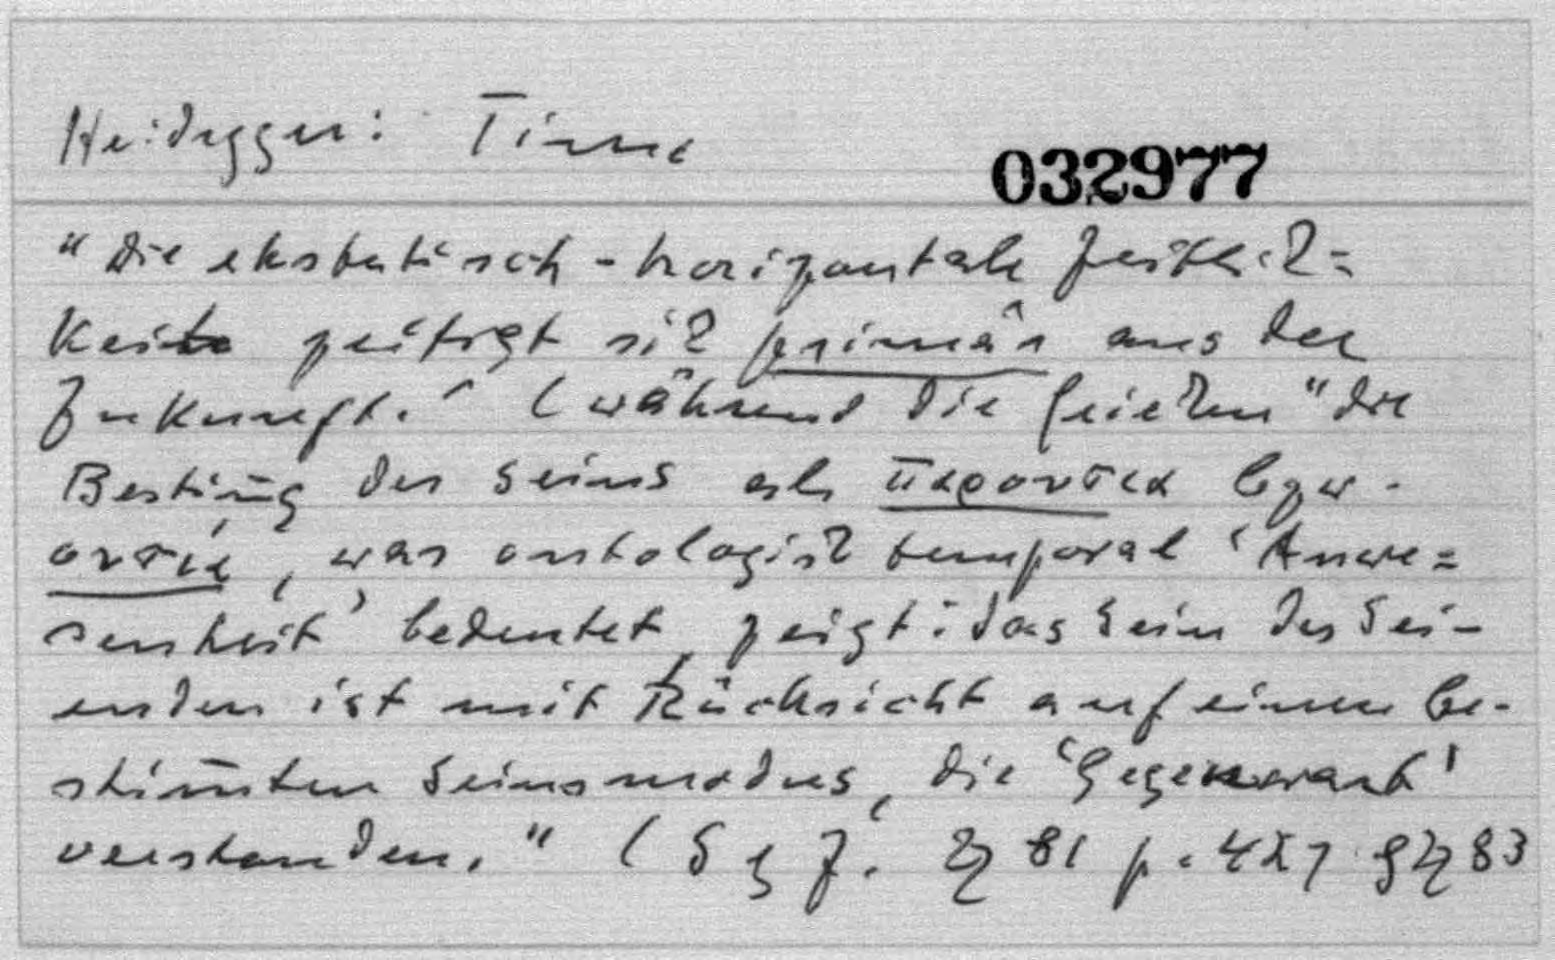 Heidegger: Time
032977
"Die ekstatisch-horizontale Zeitlich=
keit zeitigt sich primär aus der
Zukunft." (während die Griechen "die
Bestim̄g des Seins als παρουσια bzw.
ουσια, was ontologisch temporal 'Anwe=
senheit' bedeutet, zeigt: das Sein des Sei-
enden ist mit Rücksicht auf einen be-
stim̄ten Seinsmodus, die 'Gegenwart'
verstanden." (S & Z. § 81 p. 427 § 83